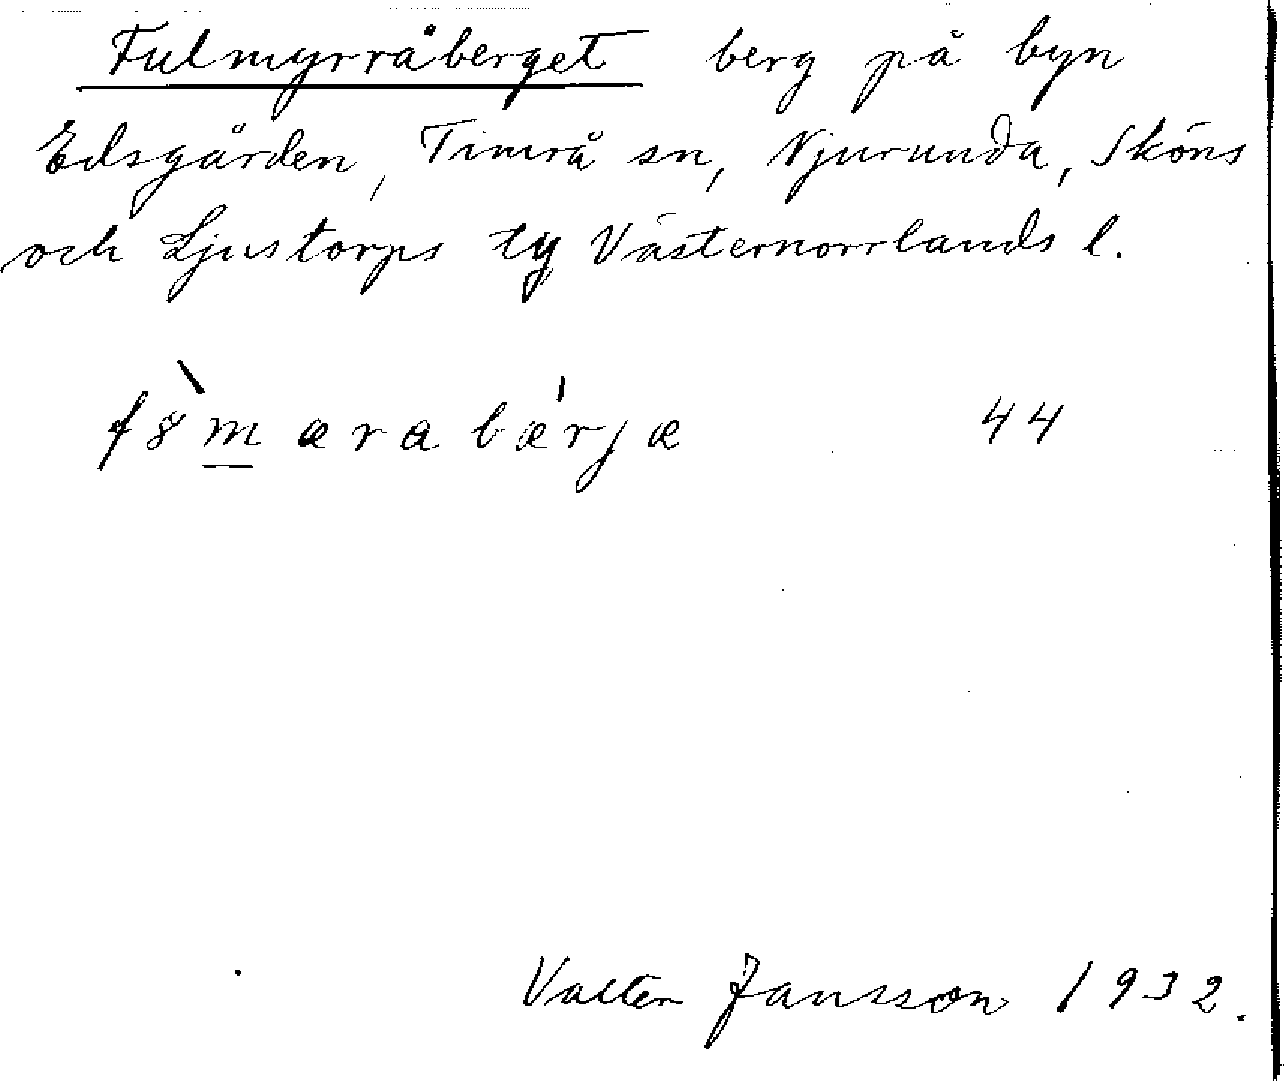 Fulmyrråberget berg på byn
Edsgården, Timrå sn, Njurunda, Sköns
och Ljustorps tg Västernorrlands l.
f8̀m̲ærabǽrjæ 44
Valter Jansson 1932.